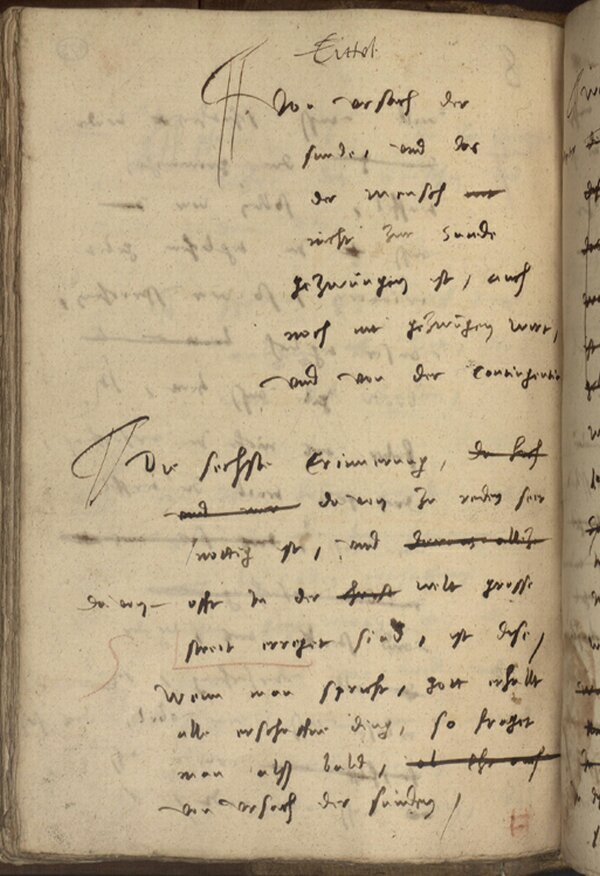 Tittel
Von ursach der
sunde, und das
der mensch
nicht zur Sunde
gezwungen ist, auch
noch nit gezwungen wirt,
und von der Contingentia
Die sechste Erinnerung,
und nun davon zu reden seer
nottig ist, und
davon offt in der Christ welt grosse
streit erreget sind, ist dise,
Wenn man spricht, gott erhallt
alle erschaffne ding, so fraget
man alss bald, ob ehr auch
von ursach der sunden,